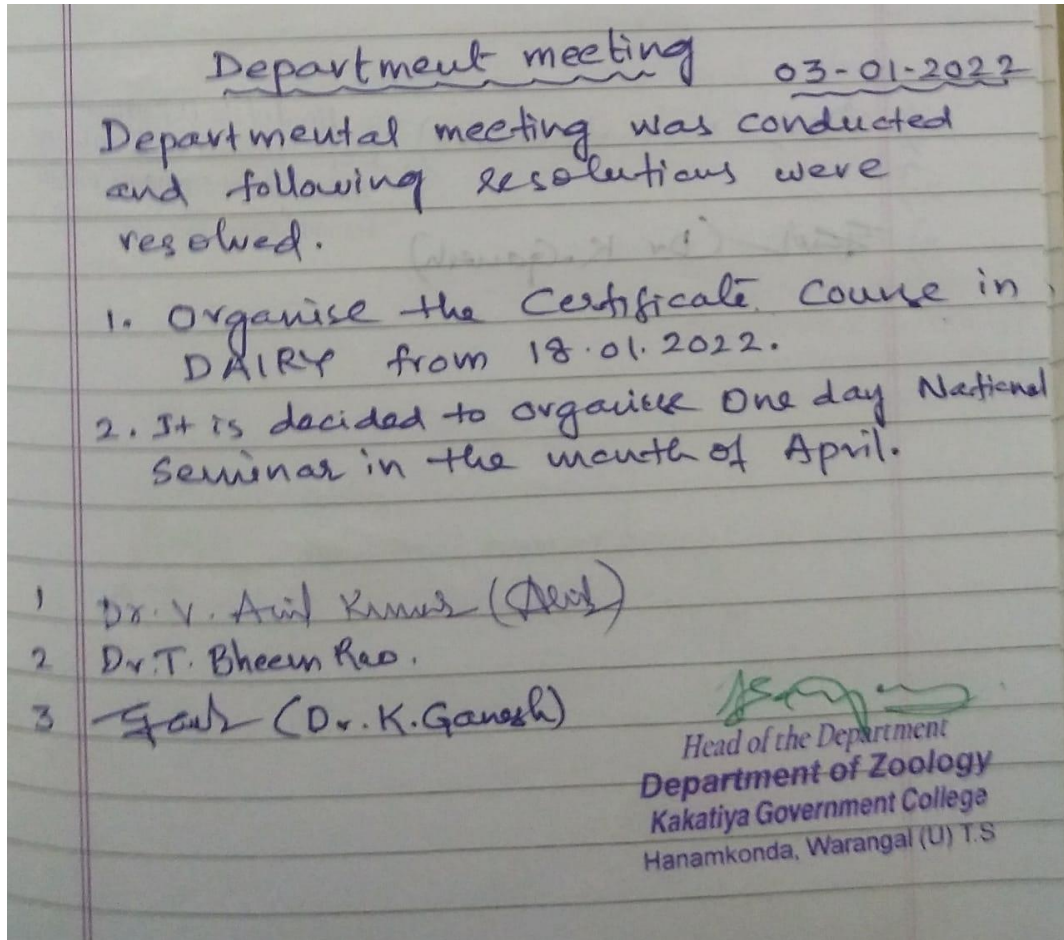 Department meeting 03-01-2022
Departmental meeting was conducted
and following resolutions were
resolved.
1. Organise the Certificate Course in
DAIRY from 18.01.2022.
2. It is decided to organise One day National
Seminar in the month of April.
1 Dr. V. Anil Kumar
2 Dr. T. Bheem Rao.
3 (Dr. K. Ganesh)
Head of the Department
Department of Zoology
Kakatiya Government College
Hanamkonda, Warangal (U) T.S